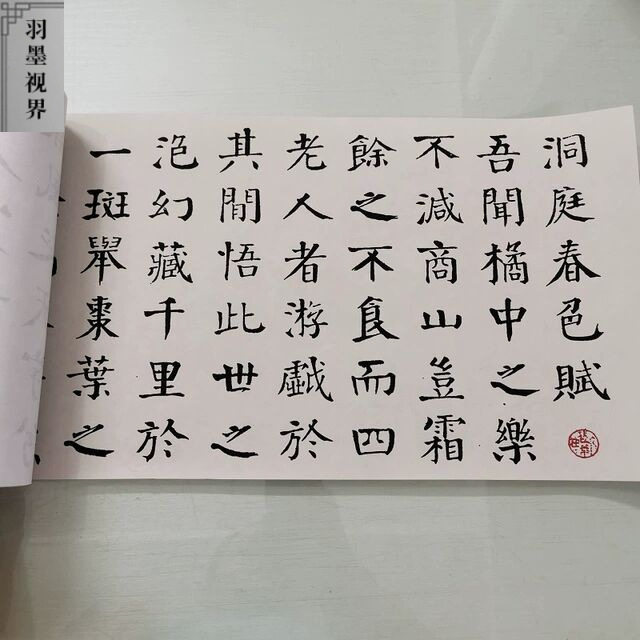 羽墨视界
洞庭春色賦
吾聞橘中之樂
不減商山豈霜
餘之不食而四
老人者游戲於
其間悟此世之
泡幻藏千里於
一斑舉棗葉之